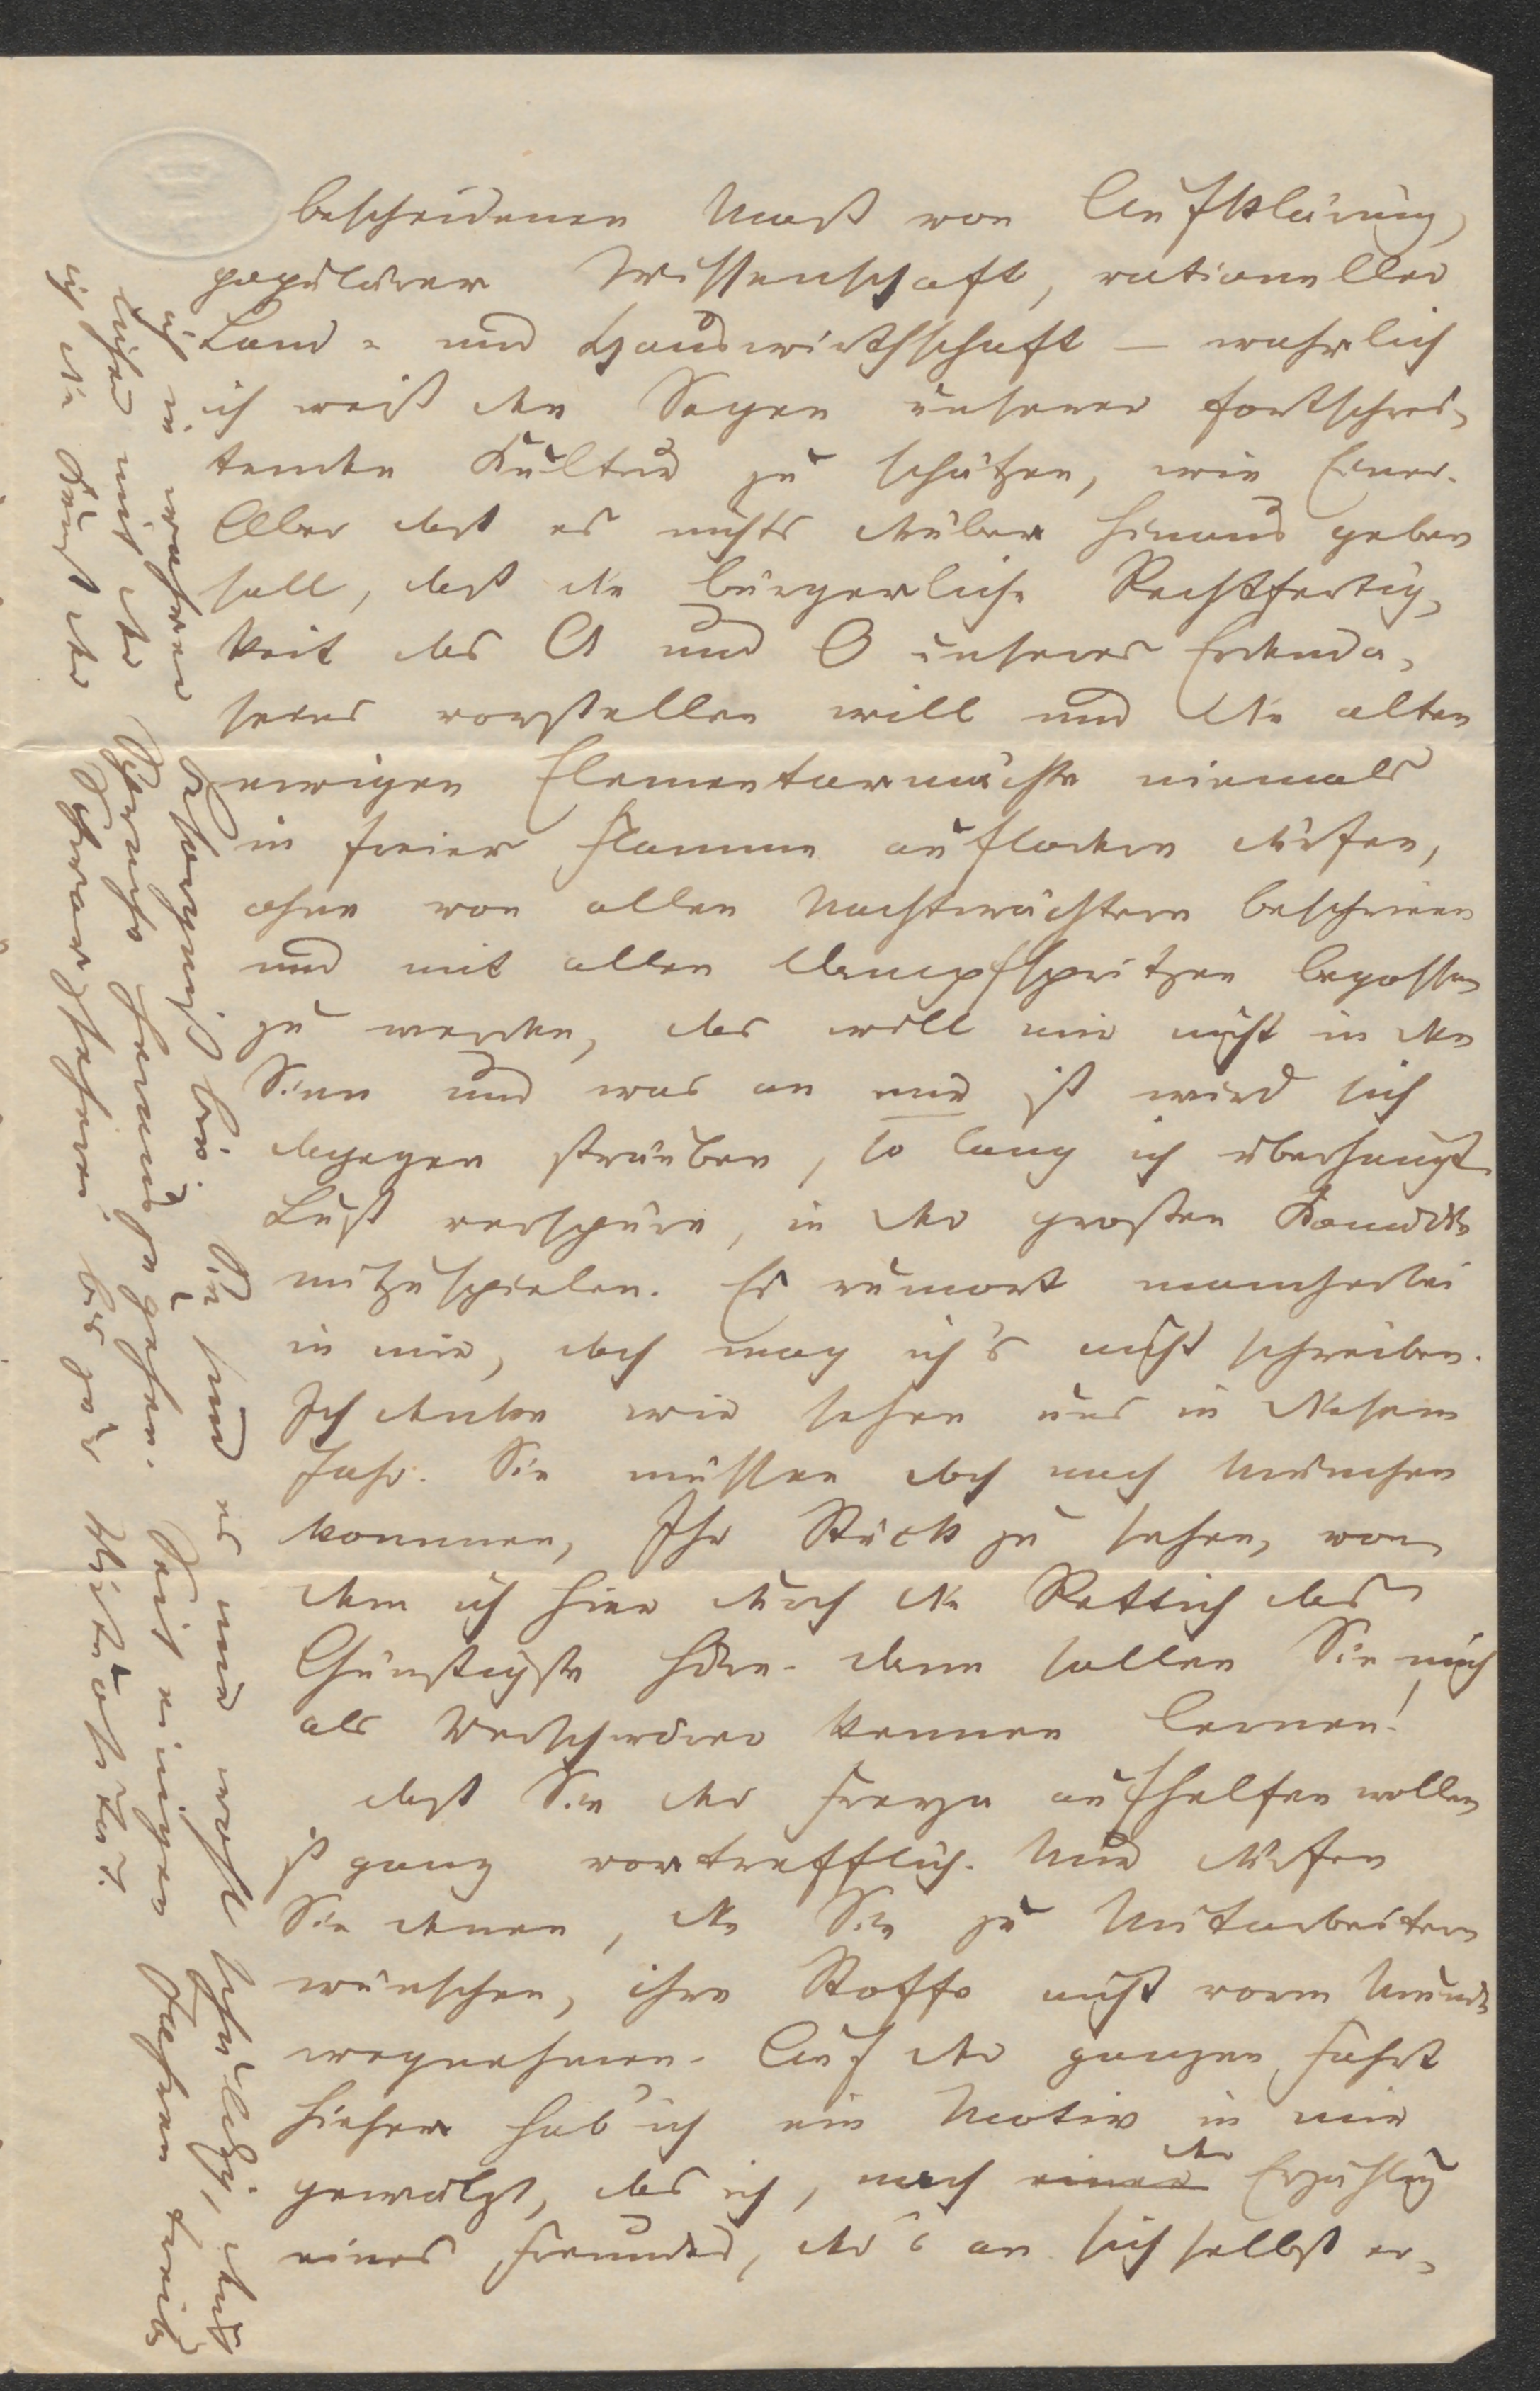 bescheidenen Maß von Aufklärung,
populärer Wissenschaft, rationeller
Land- und Hauswirthschaft — wahrlich
ich weiß den Segen unserer fortschrei-
tenden Kultur zu schätzen, wie Einer.
Aber daß es nichts drüber hinaus geben
soll, daß die bürgerliche Rechtfertig-
keit das A und O unseres Erdenda-
seins vorstellen will und die alten
ewigen Elementarmächte niemals
in freier Flamme auflodern dürfen,
ohne von allen Nachtwächtern beschrieen
und mit allen Dampfspritzen begossen
zu werden, das will mir nicht in den
Sinn und was an mir ist wird sich
dagegen sträuben, so lang ich überhaupt
Lust verspüre, in der großen Komödie
mitzuspielen. Es rumort mancherlei
in mir, doch mag ich's nicht schreiben.
Ich denke wir sehen uns in diesem
Jahr. Sie müssen doch nach München
kommen, Ihr Stück zu sehen, von
dem ich hier durch die Rettich das
Günstigste höre. dann sollen Sie mich
als Verschwörer kennen lernen!
daß Sie der Freya aufhelfen wollen
ist ganz vortrefflich. Nur dürfen
Sie denen, die Sie zu Mitarbeitern
wünschen, ihre Stoffe nicht vorm Munde
wegnehmen. Auf der ganzen Fahrt
hieher hab' ich ein Motiv in mir
gewälzt, das ich, nach einer der Erzählg
eines Freundes, der's an sich selbst er-
ich in wahrer Besorgniß bin. Sie sind es mir wohl schuldig, damit
lieber mit der Sprache herauszugehen. Seit einigen Jahren treib
ich die Kunst der